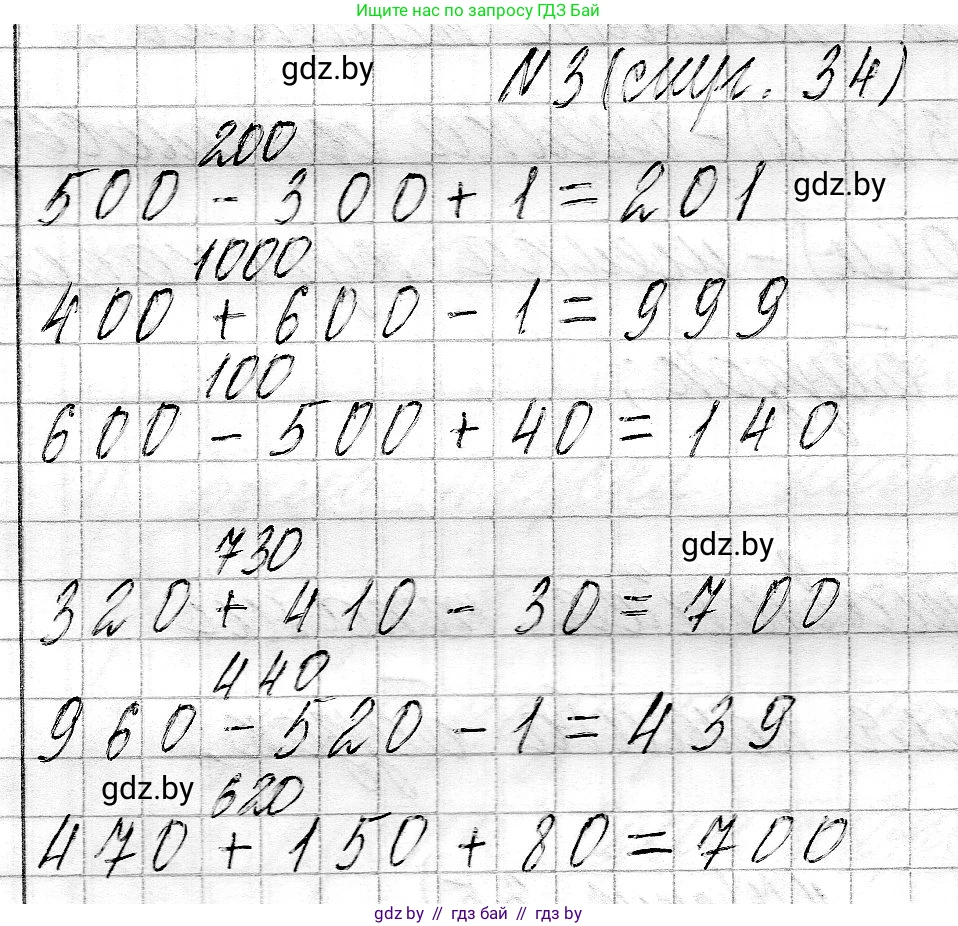 Ищите нас по запросу ГДЗ Бай
gdz.by
N 3 (стр. 34)
200
500 - 300 + 1 = 201
gdz.by
1000
400 + 600 - 1 = 999
100
600 - 500 + 40 = 140
730
gdz.by
320 + 410 - 30 = 700
440
960 - 520 - 1 = 439
gdz.by
620
470 + 150 + 80 = 700
gdz.by // гдз бай // гдз by